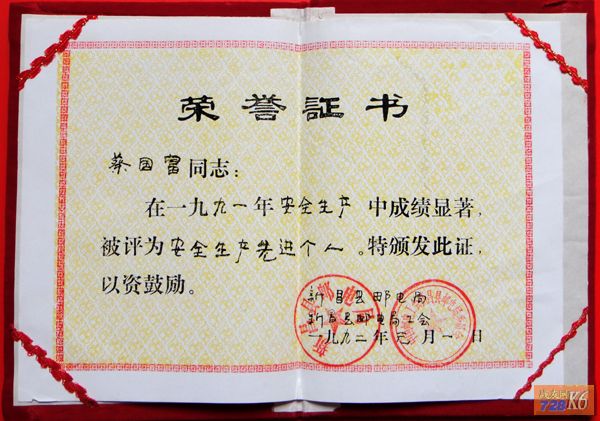 荣誉証书
蔡国富同志：
在一九九一年安全生产中成绩显著，
被评为安全生产先进个人。特颁发此证，
以资鼓励。
新昌县邮电局
新昌县邮电局工会
一九九二年元月一日
战友网
728K6